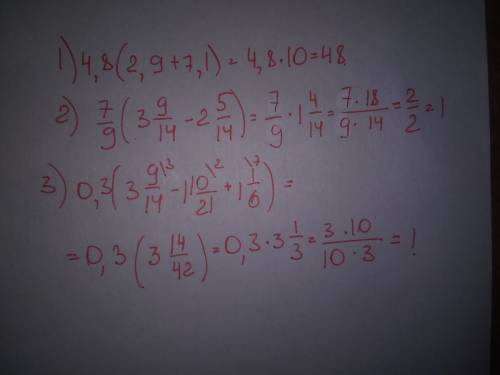 1) 4,8(2,9+7,1) = 4,8·10=48
2) 7/9 (3 9/14 - 2 5/14) = 7/9 · 1 4/14 = 7·18/9·14 = 2/2 = 1
3) 0,3(3 9\3/14 - 1 10\2/21 + 1 1\7/6) =
= 0,3 (3 14/42) = 0,3·3 1/3 = 3·10/10·3 = 1